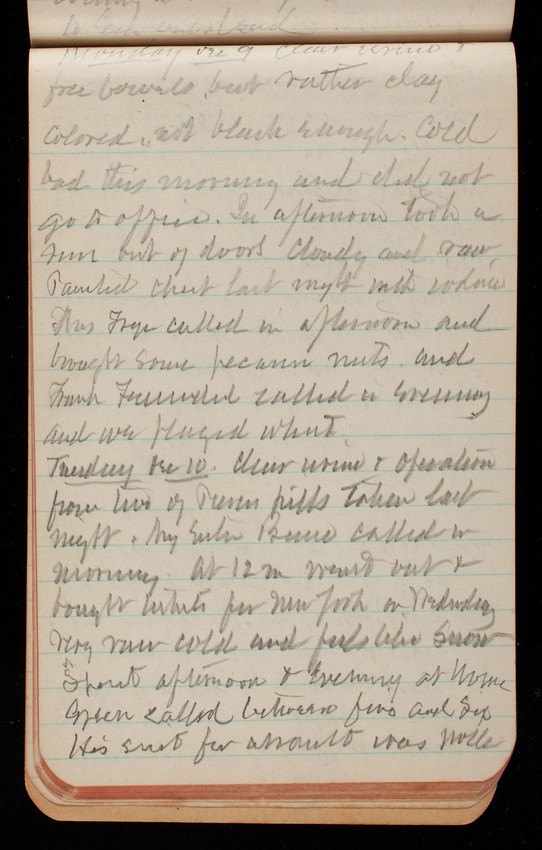 Monday Dec 9 Clear urine &
free bowels but rather clay
colored, not black enough. Cold
bad this morning and did not
go to office. In afternoon took a
run out of doors cloudy and raw
Painted chest last night with iodine
Mrs Frye called in afternoon and
bought some pecann nuts. and
Frank called in Evening
and we played whist.
Tuesday Dec 10. Clear urine & operation
from two of pills taken last
night. called in
morning. At 12 m went out &
bought tickets for New York on Wednesday
Very raw cold and feels like Snow
Spent afternoon & Evening at home
Green called between five and Six
His suit for assault was